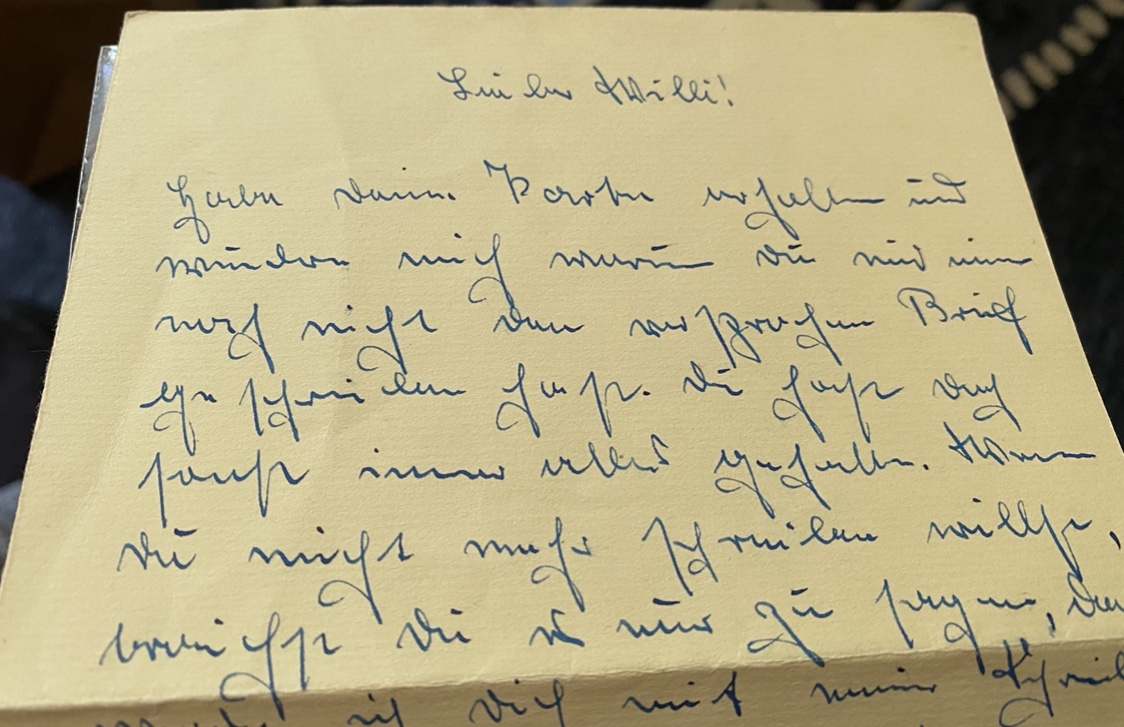 Lieber Willi!
Habe deine Karte erhalten und
wundere mich warum du mir immer
noch nicht den versprochen Brief
geschrieben hast. Du hast doch
sonst immer alles gehalten. Wenn
du nicht mehr schreiben willst,
brauchst du es nur zu sagen, dann
werde ich dich mit meiner